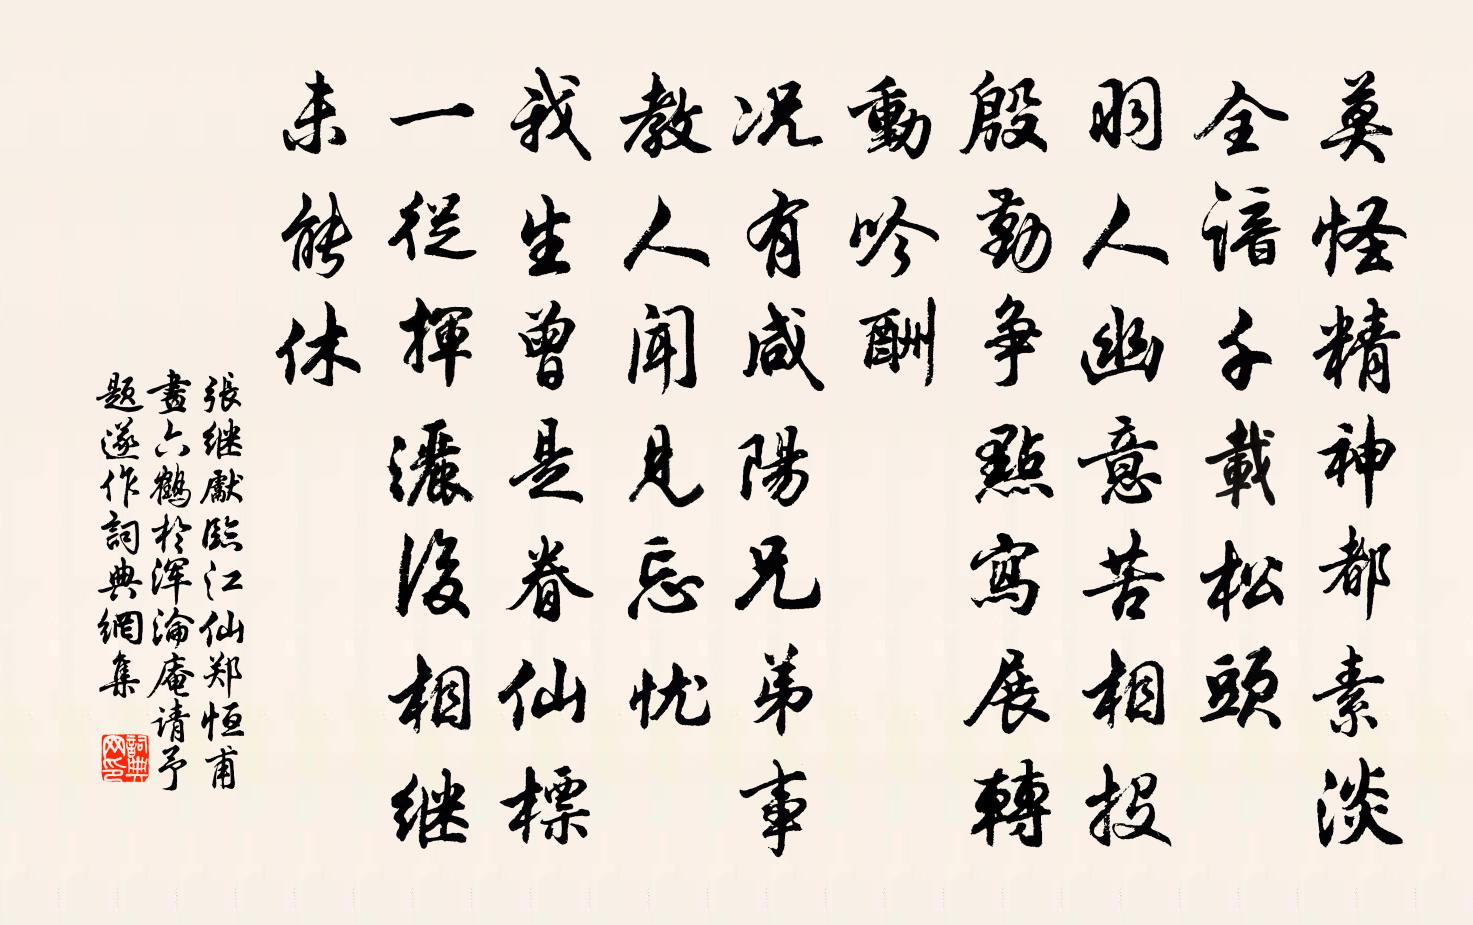 莫怪精神都素淡
全諳千載松頭
羽人幽意苦相投
殷勤爭點寫展轉
動吟酬
况有咸陽兄弟事
教人聞見忘忧
我生曾是眷仙標
一從揮灑後相継
未能休
張継獻臨江仙郑恒甫
畫六鶴於渾淪庵请予
题遂作詞典網集
詞典网印